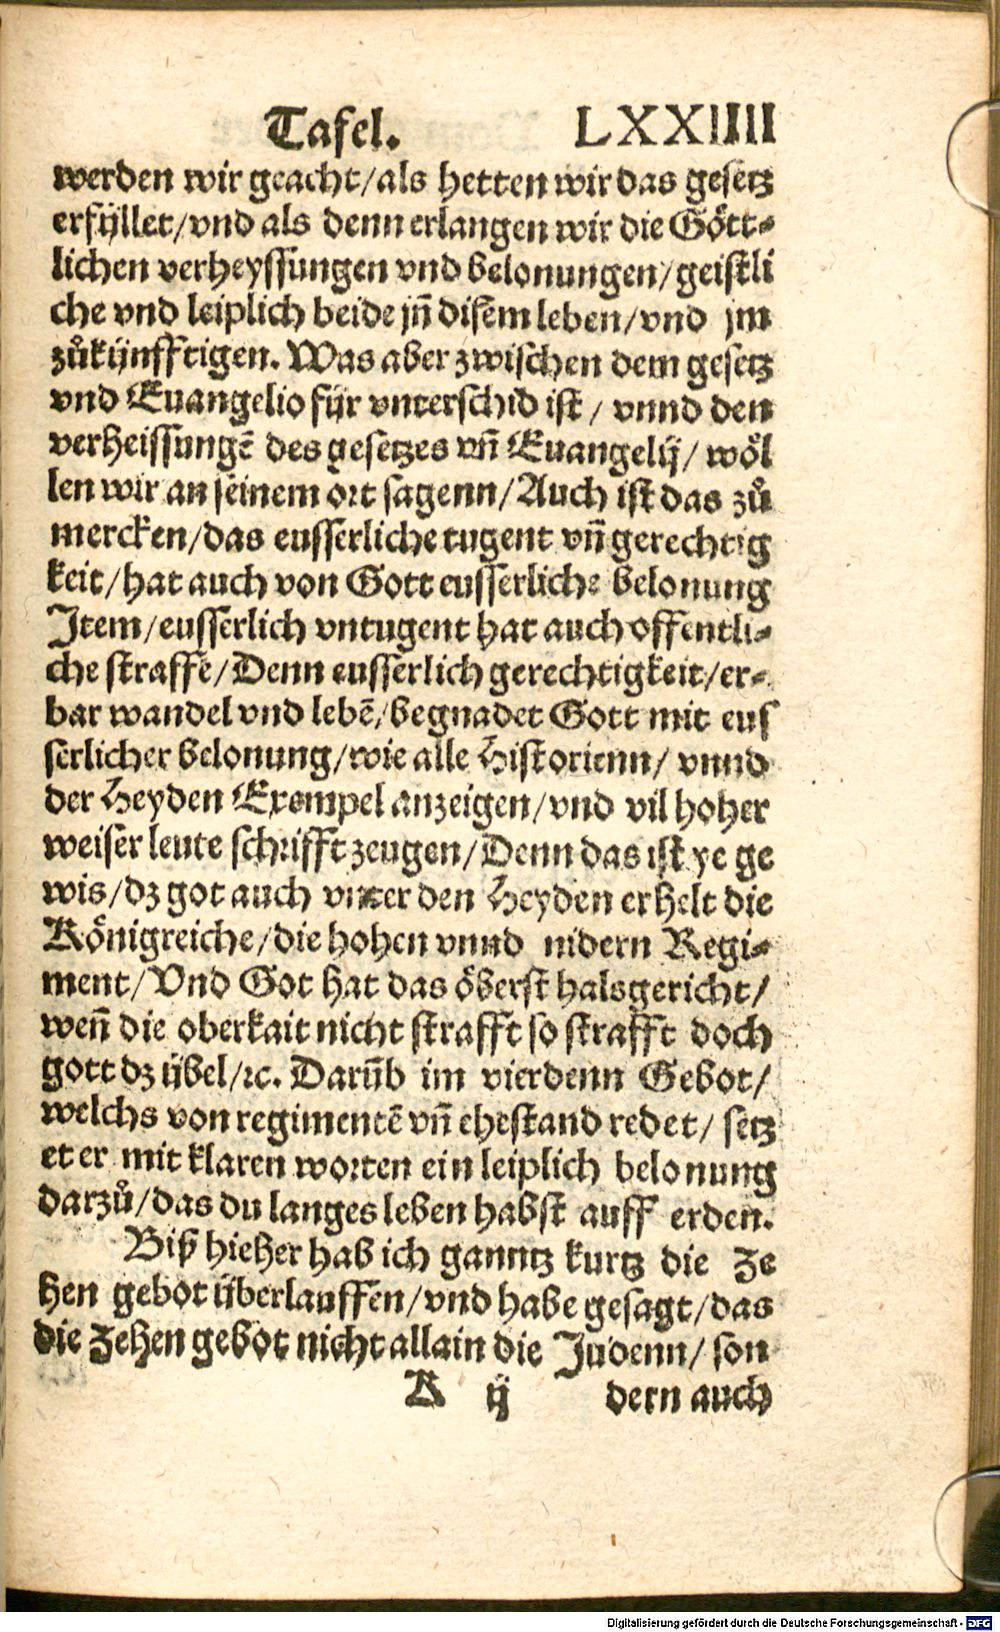 Tafel. LXXIIII
werden wir geacht/als hetten wir das gesetz
erfÿllet/vnd als denn erlangen wir die Gött-
lichen verheyssungen vnd belonungen/geistli
che vnd leiplich beide jñ disem leben/vnd jm
zůkÿnfftigen. Was aber zwischen dem gesetz
vnd Euangelio fÿr vnterschid ist / vnnd den
verheissungẽ des gesetzes vñ Euangelij/ wöl
len wir an seinem ort sagenn/Auch ist das zů
mercken/das eusserliche tugent vñ gerechtig
keit/hat auch von Gott eusserliche belonung
Item/eusserlich vntugent hat auch offentli-
che straffe/Denn eusserlich gerechtigkeit/er-
bar wandel vnd lebẽ/begnadet Gott mit eus
serlicher belonung/wie alle Historienn/ vnnd
der Heyden Exempel anzeigen/vnd vil hoher
weiser leute schrifft zeugen/Denn das ist ye ge
wis/dz got auch vnter den Heyden erhelt die
Königreiche/die hohen vnnd nidern Regi-
ment/Vnd Got hat das öberst halsgericht/
weñ die oberkait nicht strafft so strafft doch
gott dz ÿbel/ꝛc. Darũb im vierdenn Gebot/
welchs von regimentẽ vñ ehestand redet/ setz
et er mit klaren worten ein leiplich belonung
darzů/das du langes leben habst auff erden.
Biß hieher hab ich ganntz kurtz die Ze
hen gebot ÿberlauffen/vnd habe gesagt/das
die Zehen gebot nicht allain die Judenn/ son
K ij dern auch
Digitalisierung gefördert durch die Deutsche Forschungsgemeinschaft - DFG